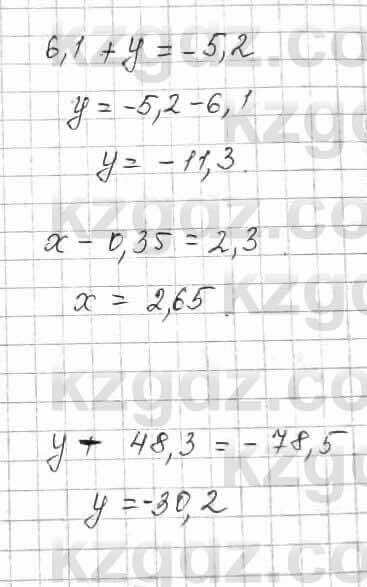 6,1 + y = -5,2
y = -5,2 - 6,1
y = -11,3
x - 0,35 = 2,3
x = 2,65
y - 48,3 = -78,5
y = -30,2
kzgdz.co
kzgdz.co
kzgdz.co
kzgdz.co
kzgdz.co
kzgdz.co
kzgdz.co